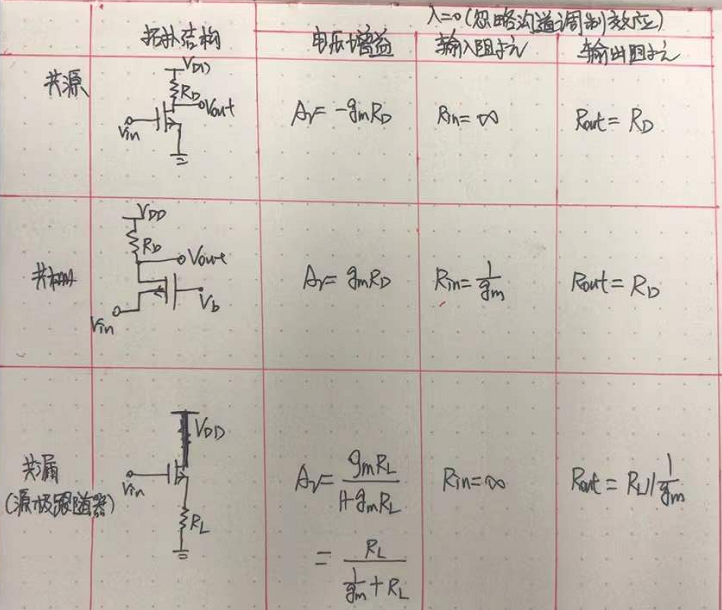 λ=0(忽略沟道调制效应)
拓扑结构 电压增益 输入阻抗 输出阻抗
共源 VDD RD Vout Vin Av = -gmRD Rin = ∞ Rout = RD
共栅 VDD RD Vout Vb Vin Av = gmRD Rin = 1/gm Rout = RD
共漏 VDD Vin RL Av = gmRL/1+gmRL Rin = ∞ Rout = RL||1/gm
(源极跟随器)
= RL/1/gm + RL